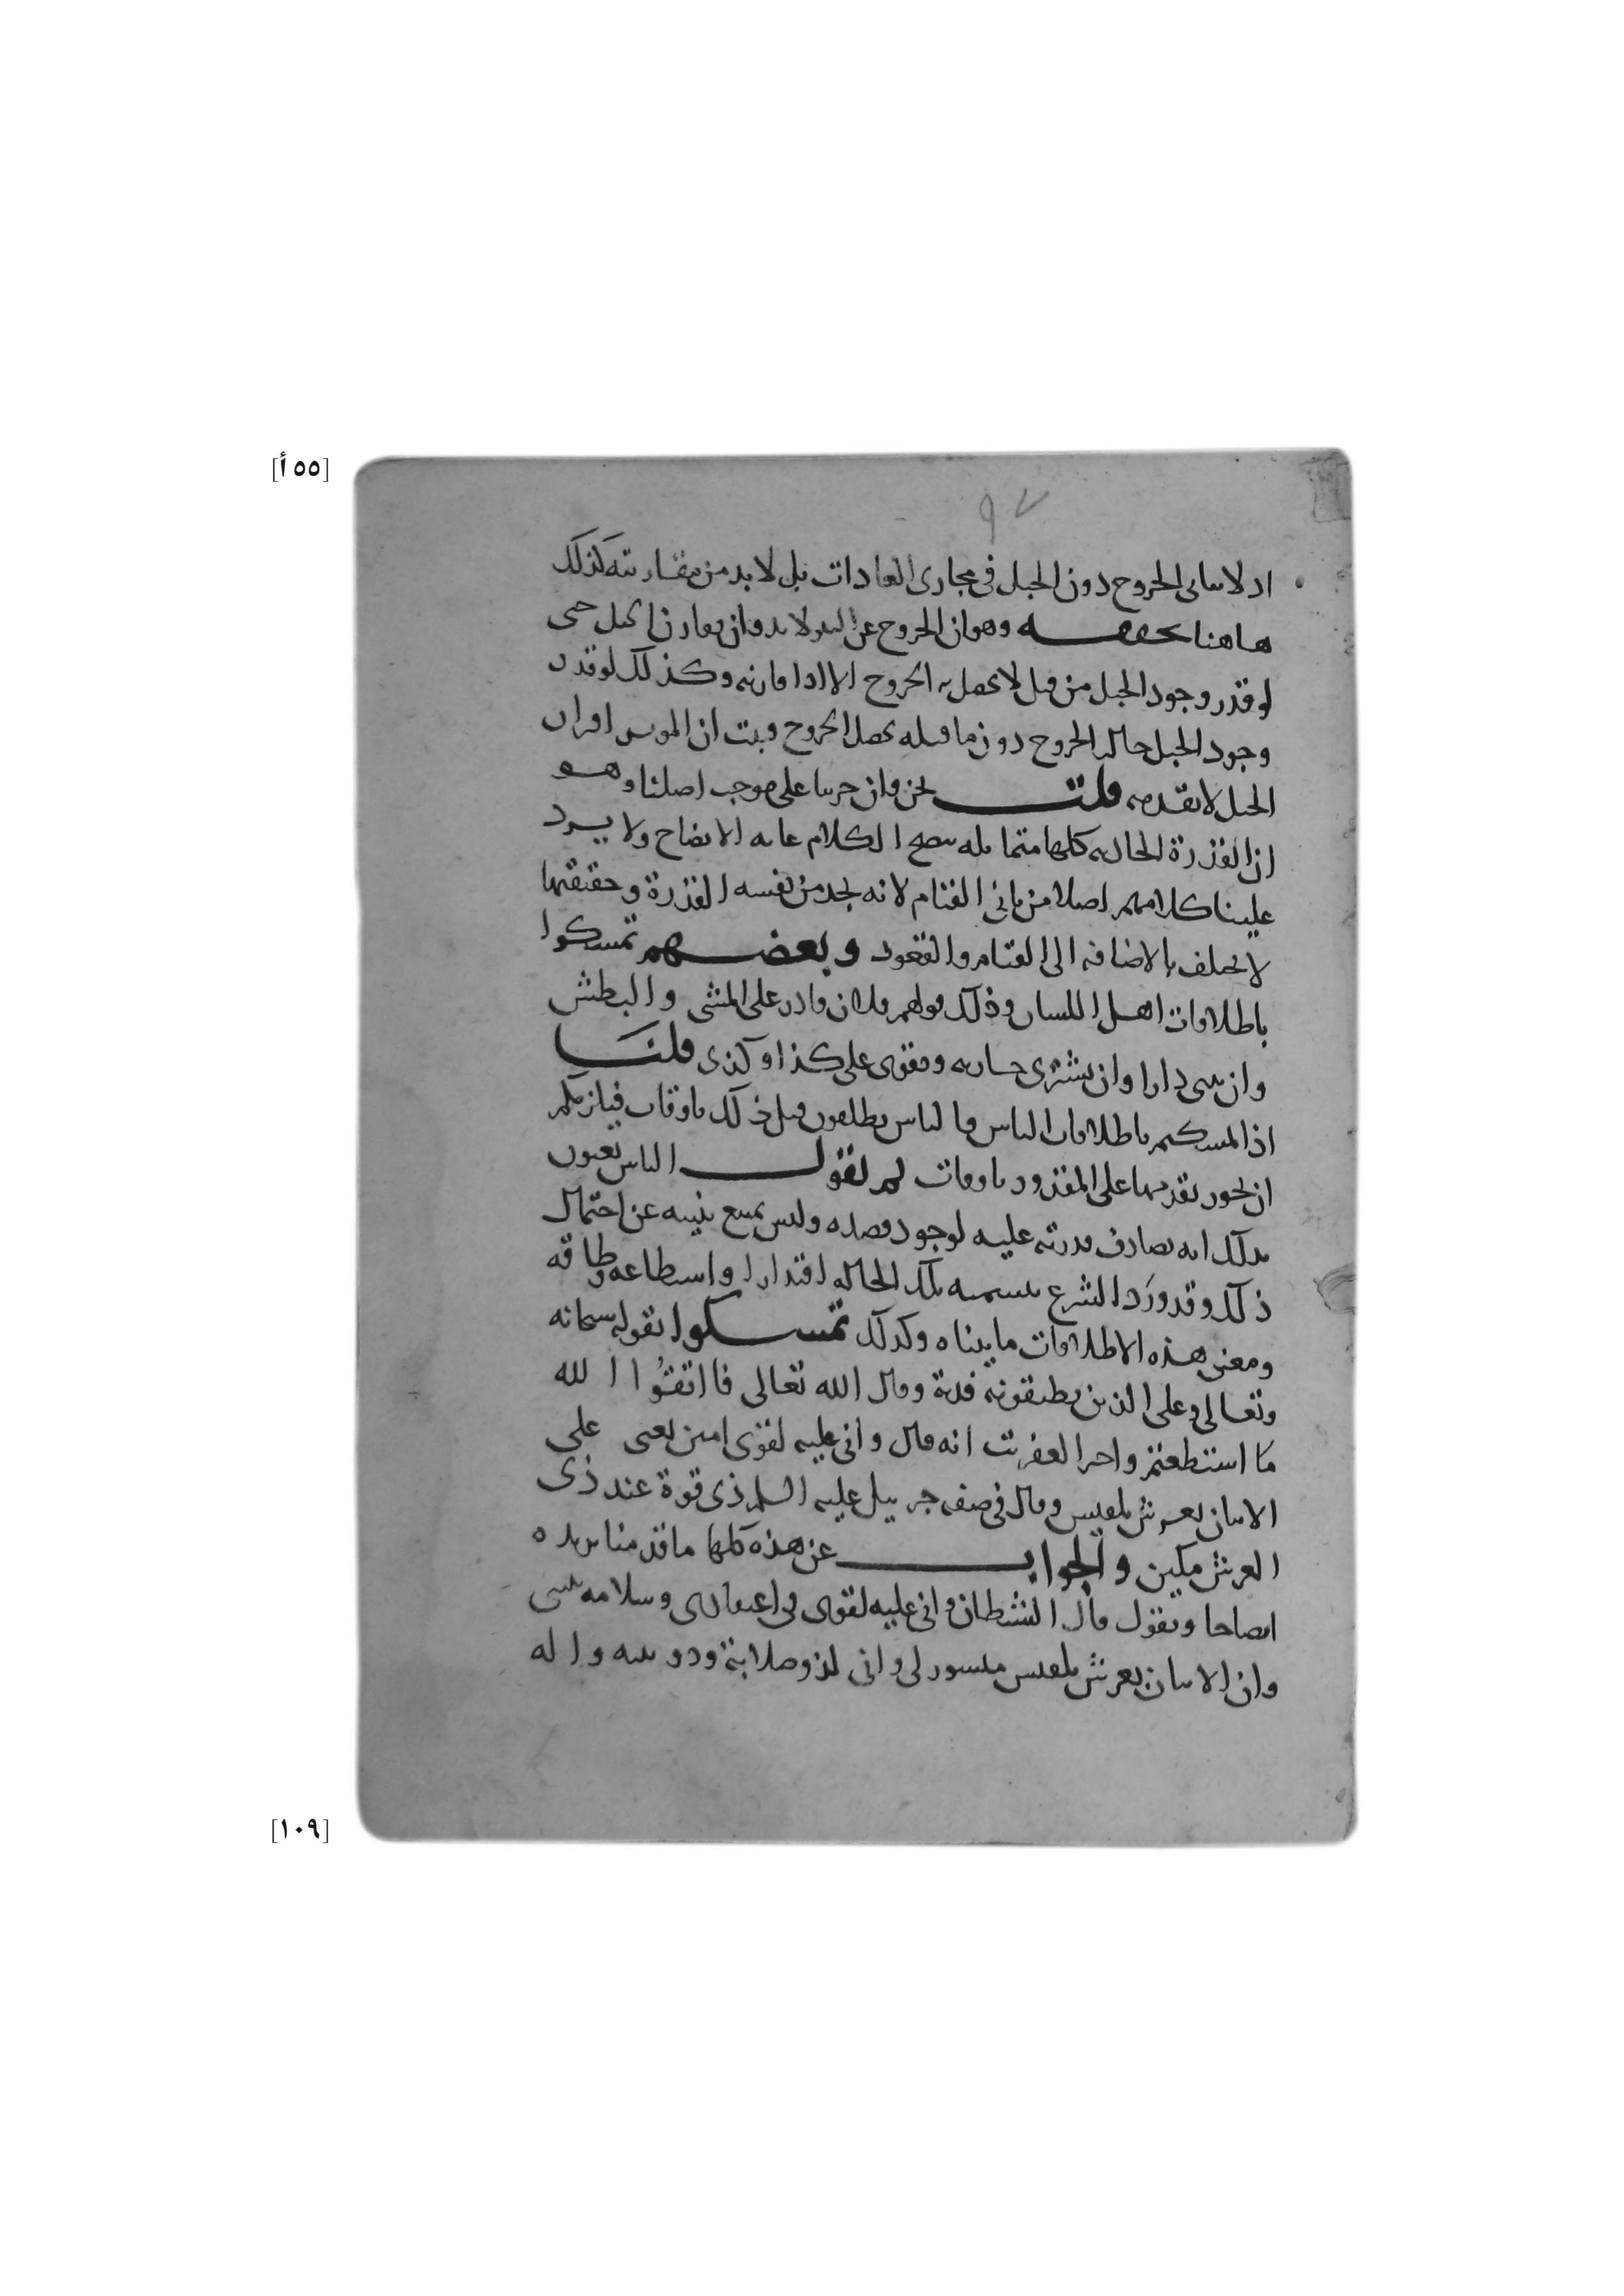 [٥٥ أ]
٩٧
اذ لا يتأتى الخروج دون الحبل في مجارى العادات بل لا بد من مقارنته كذلك
هاهنا تحققه وهو ان الخروج عن البير لا بد وان يقارن الحبل حتى
لو قدر وجود الحبل من قبل لا يحصل به الخروج الا اذا قارنه وكذلك لو قدر
وجود الحبل حالة الخروج دون ما قبله يحصل الخروج فبت ان الموثر اقران
الحبل لا تقدمه قلت نحن وان جرينا على موجب اصلنا وهو
ان القدرة الحالية كلها متماثله يتضح الكلام غايه الايضاح ولا يرد
علينا كلامهم اصلا من باني القيام لانه يجد من نفسه القدرة وحقيقتها
لا تختلف بالاضافه الى القيام والقعود وبعضهم تمسكوا
باطلاقات اهل اللسان وذلك قولهم فلان قادر على المشي والبطش
وان يبنى دارا وان يشترى جاريه ومقوى على كذا وكذى قلنا
اذا تمسكتم باطلاقات الناس فالناس يطلقون قبل ذلك باوقات فيلزمكم
ان تجوز تقدمها على المقدور باوقات ثم نقول الناس يعنون
بذلك انه تصادف قدرته عليه لوجود قصده وليس يمتنع بنيته عن احتمال
ذلك وقد ورد الشرع بتسميه تلك الحاله اقتدارا واستطاعه وطاقه
ومعنى هذه الاطلاقات ما بيناه وكذلك تمسكوا بقوله سبحانه
وتعالى وعلى الذين يطيقونه فدية وقال الله تعالى فاتقوا الله
ما استطعتم واخبر العفريت انه قال واني عليه لقوى امين يعنى على
الاتيان بعرش بلقيس وقال في صفه جبريل عليه السلم ذى قوة عند ذى
العرش مكين والجواب عن هذه كلها ما قدمنا نزيده
ايضاحا ونقول قال الشيطان واني عليه لقوى في اعتقادى وسلامه بنيتي
وان الاتيان بعرش بلقيس ميسور لي واني لذو صلابة وذو بنيه واله
[١٠٩]